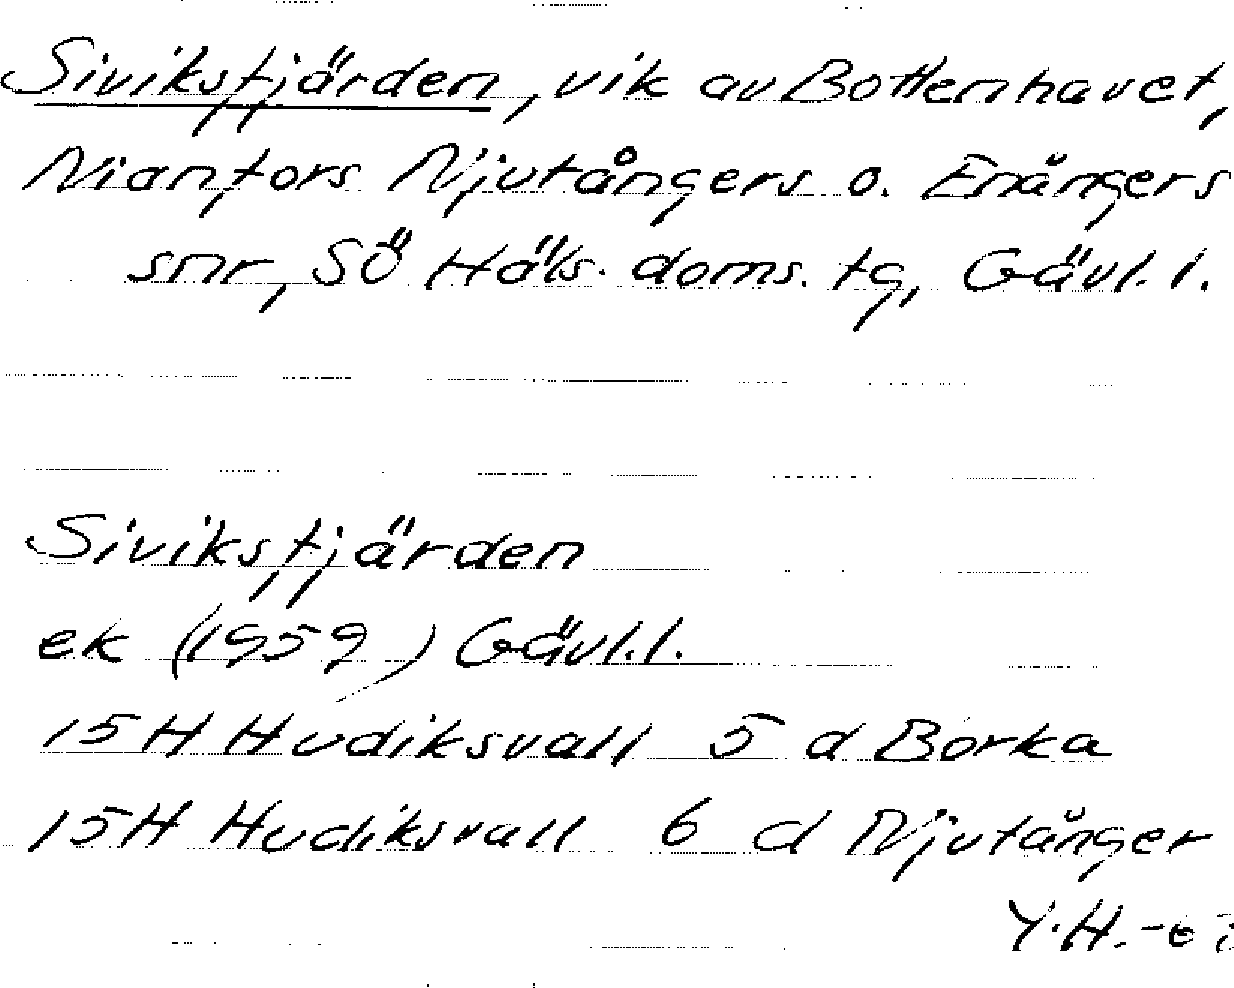 Siviksfjärden, vik av Bottenhavet,
Nianfors Njutångers o. Enångers
snr, SÖ Häls. doms. tg, Gävl. l.
Siviksfjärden
ek (1959) Gävl. l.
15H Hudiksvall 5 d Borka
15H Hudiksvall 6 d Njutånger
Y.H.